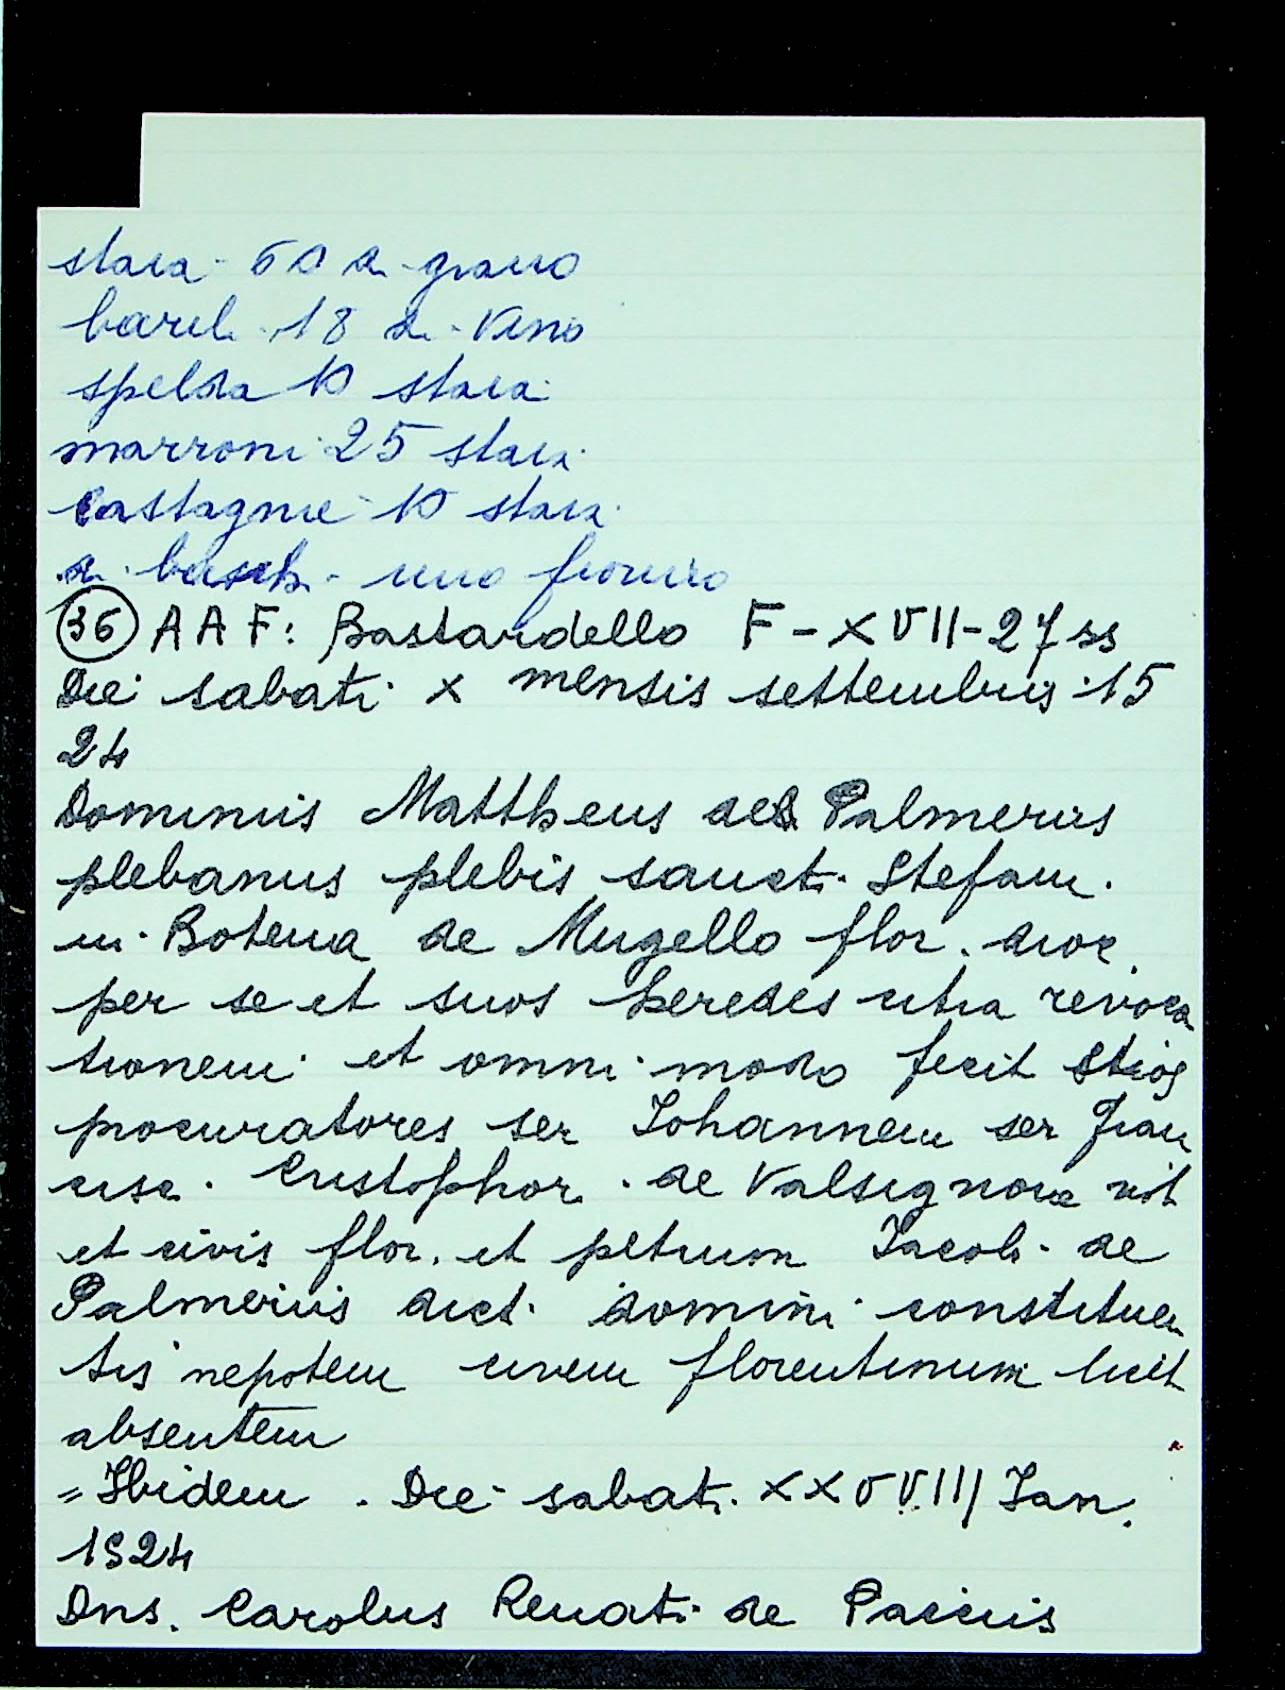 staia 60 di grano
baril. 18 di vino
spelda 10 staia
marroni 25 staia
castagnie 10 staia
uno fiorino
36 AAF: Bastardello F-XVII-27 ss
Die sabati X mensis settembris 15
24
Dominus Mattheus de Palmeriis
plebanus plebis sancti Stefani
in Botena de Mugello flor. dioc.
per se et suos heredes citra revoca
tionem et omni modo fecit suos
procuratores ser Iohannem ser Fran
cisci Cristophori de Valsignora not
et civis flor. et petrum Iacobi de
Palmeriis dicti domini constituen
tis nepotem civem florentinum licet
absentem
= Ibidem. Die sabati. Jan.
1524
Dns. Carolus Renati de Pacciis